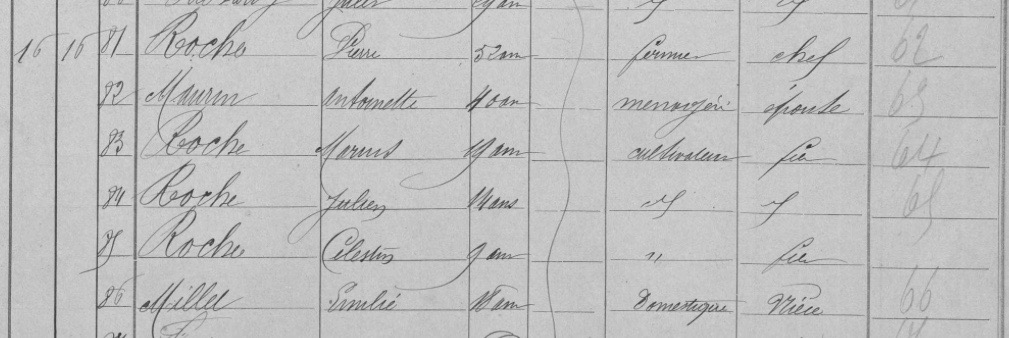 16 16 81 Roche Pierre 52 an fermier chef 62
82 Maurin Antoinette 40 an menagère épouse 63
83 Roche Marius 19 an cultivateur fils 64
84 Roche Julien 14 ans 65
85 Roche Célestin 9 an " fils
86 Millet Emilie 18 an Domestique Nièce 66